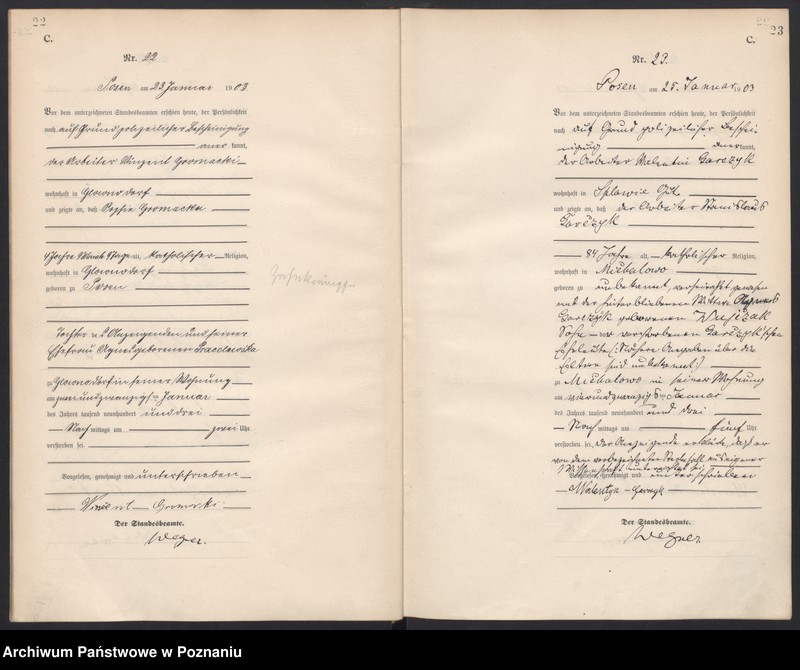 22
C.
Nr. 22
Posen am 23 Januar 1903
Vor dem unterzeichneten Standesbeamten erschien heute, der Persönlichkeit
nach auf Grund polizeilicher Bescheinigung
aner kannt,
der Arbeiter Vinzent Gromacki
wohnhaft in Glownodorf
und zeigte an, daß Sophie Gromacka
alt, katholischer Religion,
wohnhaft in Glownodorf
geboren zu Posen
Tochter des Anzeigenden und seiner
Ehefrau Agnes geborenen
zu Glownodorf in seiner Wohnung
am zweiundzwanzigsten Januar
des Jahres tausend neunhundert und drei
Nach mittags um zwei Uhr
verstorben sei.
Vorgelesen, genehmigt und unterschrieben
Vincent Gromacki
Der Standesbeamte.
Wegner.
23
C.
Nr. 23.
Posen am 25. Januar 1903
Vor dem unterzeichneten Standesbeamten erschien heute, der Persönlichkeit
nach auf Grund polizeilicher Beschei-
nigung aner kannt,
der Arbeiter Valentin Garczyk
wohnhaft in Splawie Gut
und zeigte an, daß der Arbeiter Stanislaus
Garczyk
84 Jahre alt, katholischer Religion,
wohnhaft in Michalowo
geboren zu unbekannt, verheirathet gewesen
mit der hinterbliebenen Wittwe Agnes
Garczyk geborenen
Sohn der verstorbenen Garczyk'schen
Eheleute (: Nähere Angaben über die
Eltern sind unbekannt :)
zu Michalowo in seiner Wohnung
am vierundzwanzigsten Januar
des Jahres tausend neunhundert und drei
Nach mittags um fünf Uhr
verstorben sei, der Anzeigende erklärte, daß er
von dem vorbezeichneten Sterbefall aus eigener
Wissenschaft unterrichtet sei
Vorgelesen, genehmigt und unterschrieben
Walentyn Garczyk
Der Standesbeamte.
Wegner
Archiwum Państwowe w Poznaniu